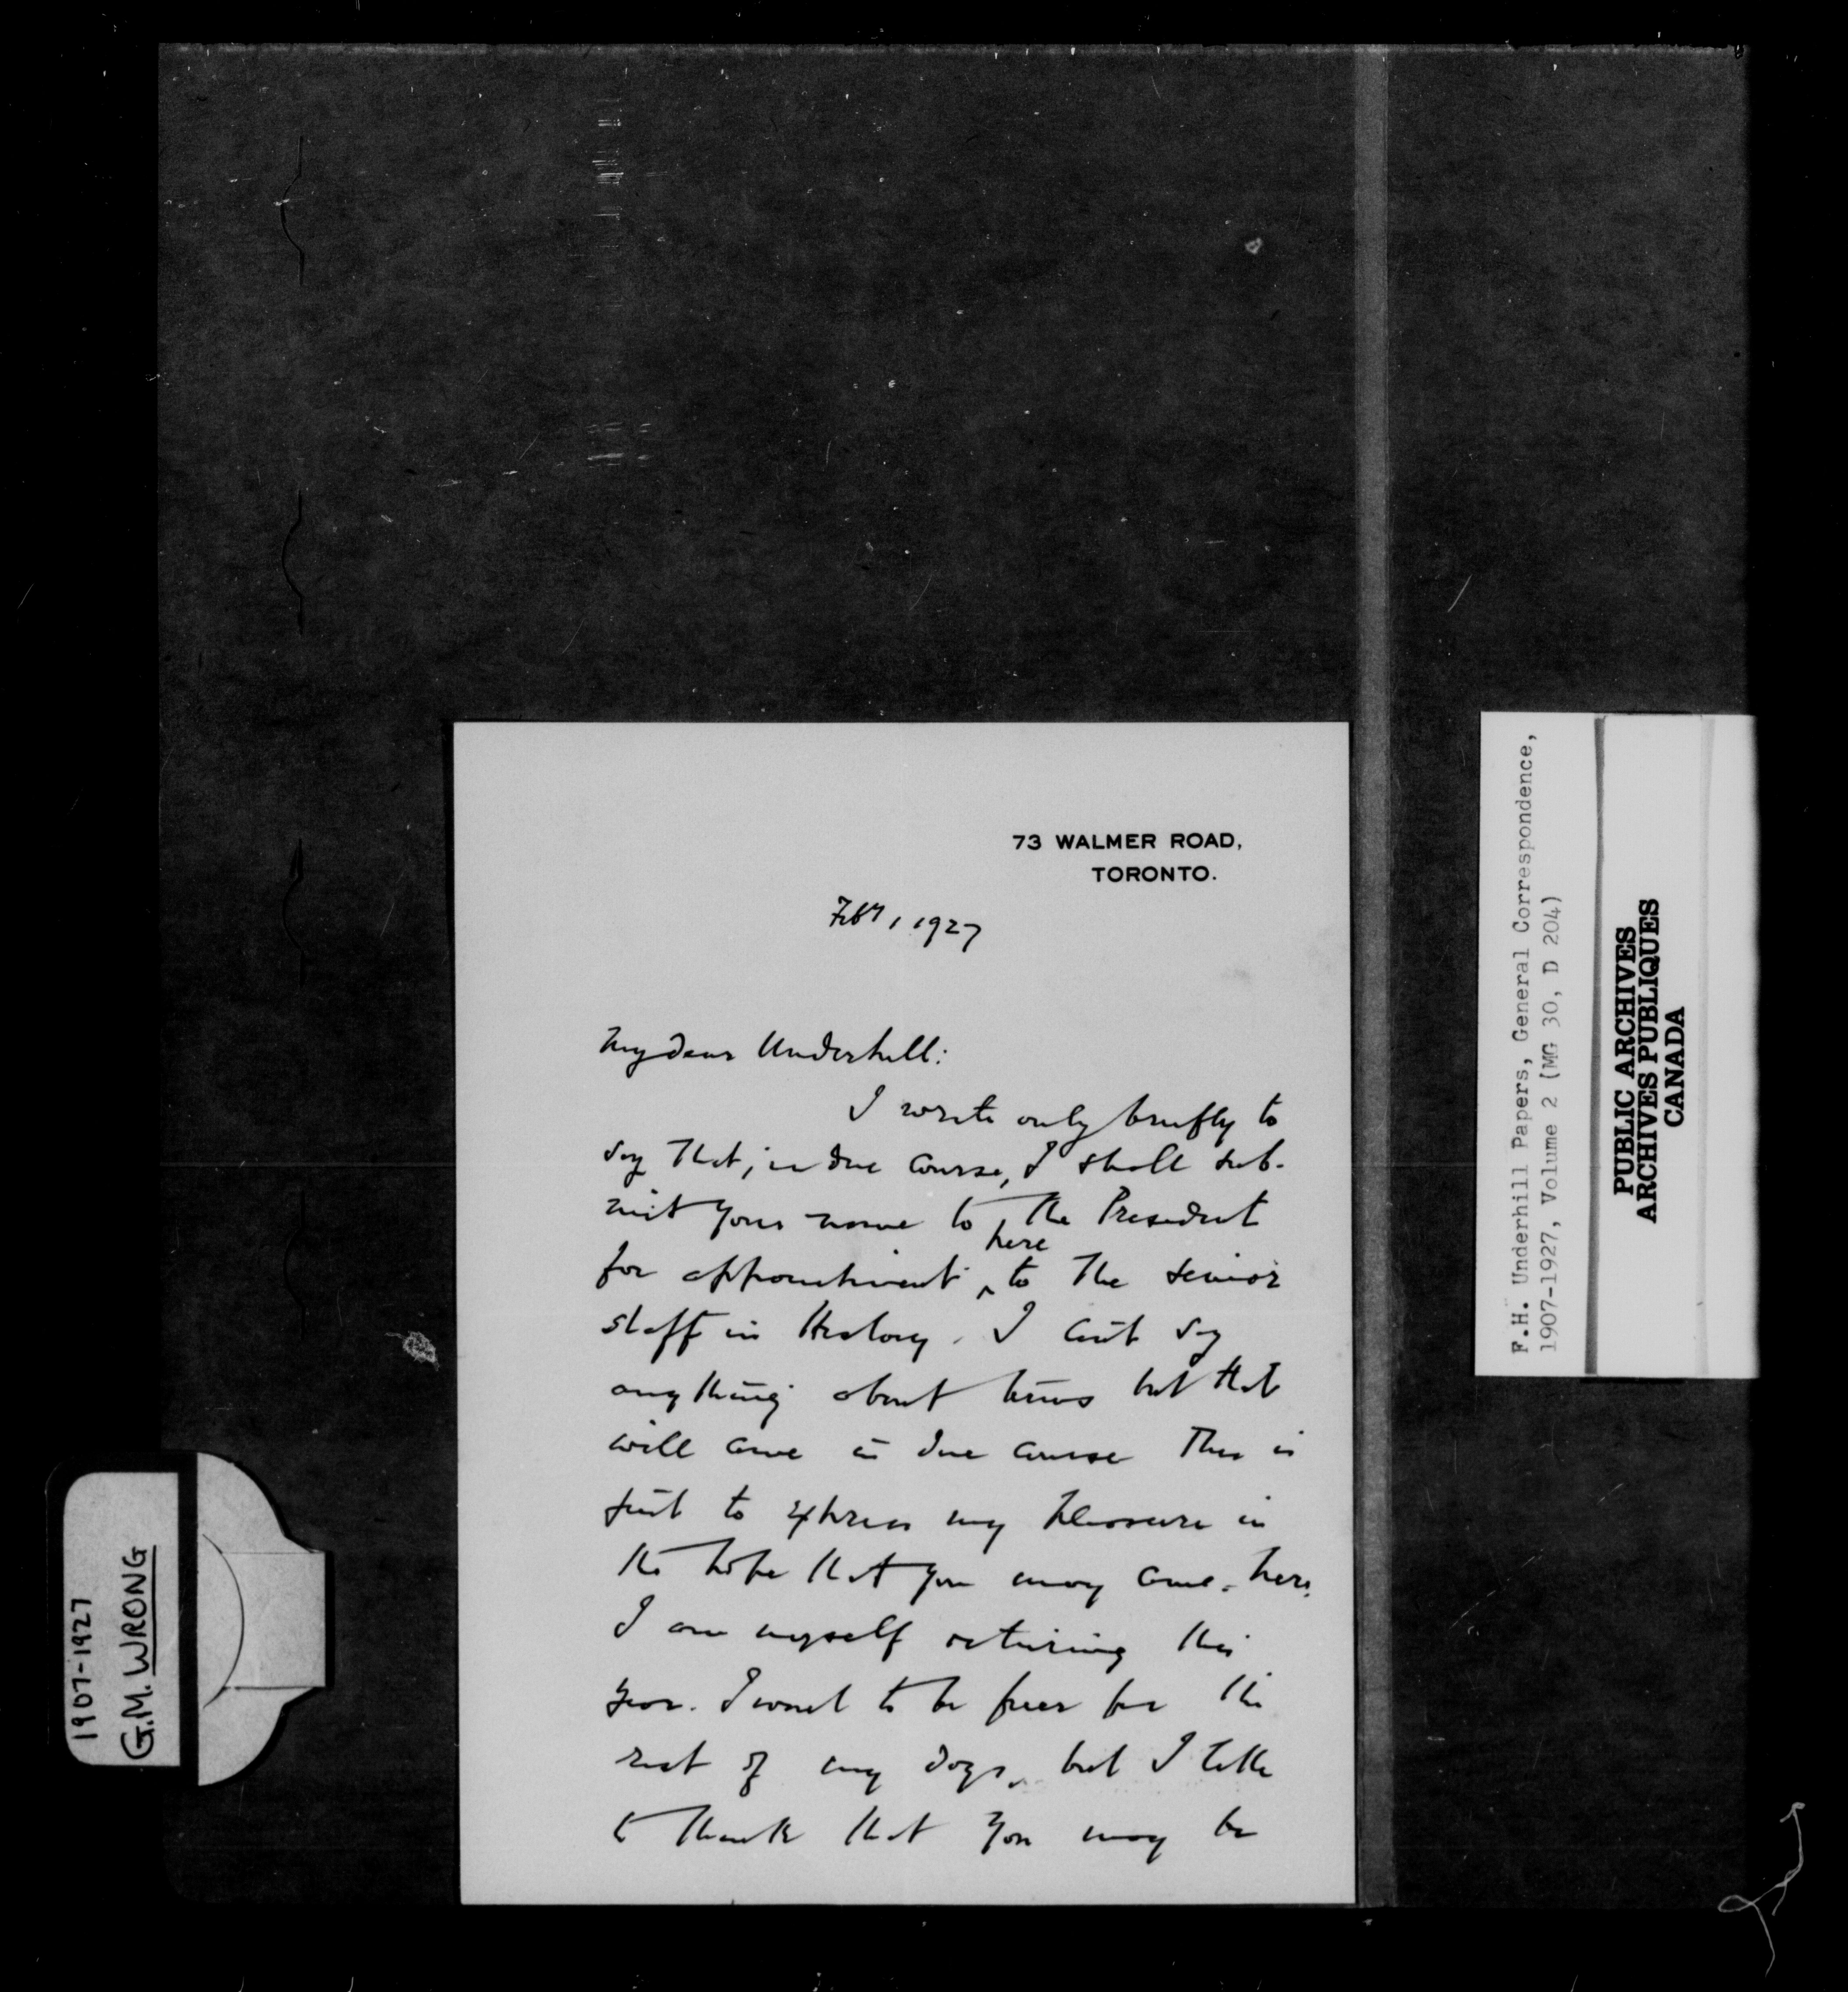 73 WALMER ROAD,
TORONTO.
Feby 1 1927
My dear Underhill:
I write only briefly to
say that, in due course, I shall sub-
mit your name to the President
for appointment ^ here to the senior
staff in History. I can't say
anything about terms but that
will come in due course This is
just to express my pleasure in
the hope that you may come here.
I am myself retiring this
year. I want to be freer for the
rest of my days, but I like
to think that you may be
F.H. Underhill Papers, General Correspondence,
1907-1927, Volume 2 (MG 30, D 204)
PUBLIC ARCHIVES
ARCHIVES PUBLIQUES
CANADA
1907-1927
G.M. WRONG